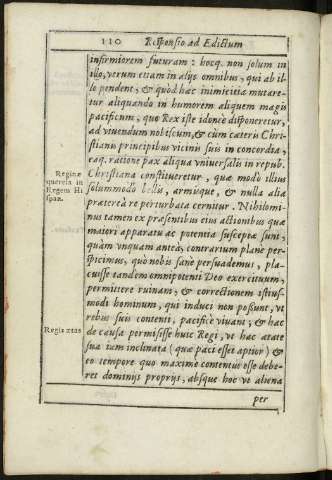 110 Responsio ad Edictum
infirmiorem futuram: hocq. non solum in
illo, verum etiam in alijs omnibus, qui ab il-
lo pendent, & quòd hac inimicitia mutare-
tur aliquando in humorem aliquem magis
pacificum, quo Rex iste idoneè disponeretur,
ad viuendum nobiscum, & cum cæteris Chri-
stianis principibus vicinis suis in concordia,
eaq. ratione pax aliqua vniuersalis in repub.
Christiana constitueretur, quæ modò illius
solummodò bellis, armisque, & nulla alia
præterea re perturbata cernitur. Nihilomi-
nus tamen ex præsentibus eius actionibus quæ
maiori apparatu ac potentia susceptæ sunt,
quàm vnquam antea, contrarium planè per-
spicimus, quo nobis sanè persuademus, pla-
cuisse tandem omnipotenti Deo exercituum,
permittere ruinam, & correctionem istius-
modi hominum, qui induci non possunt, vt
rebus suis contenti, pacificè viuant; & hac
de causa permisisse huic Regi, vt hac ætate
sua iam inclinata (quæ paci esset aptior) &
eo tempore quo maximè contentus esse debe-
ret dominijs proprijs, absque hoc vt aliena
per
Reginæ
querela in
Regem Hi
spaæ.
Regis ætas